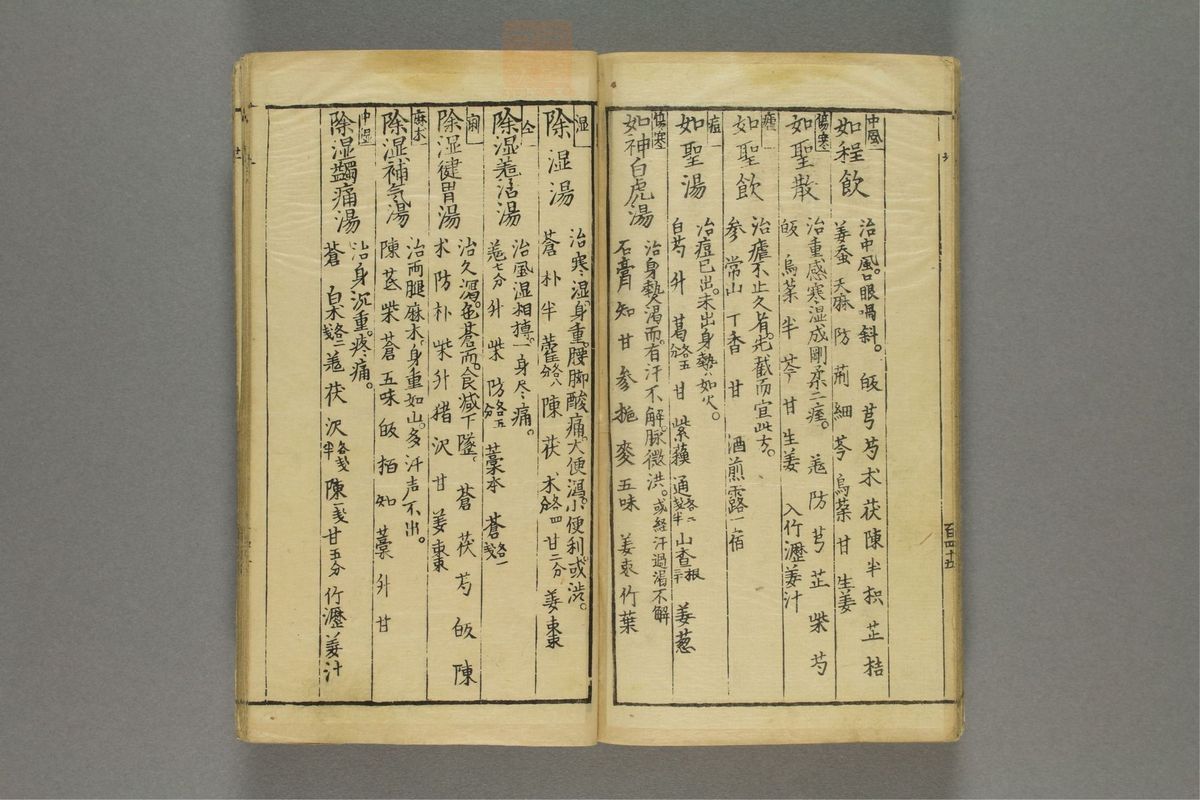 中風
如程飲
治中風。口眼喎斜。 皈 芎 芍 朮 茯 陳 半 枳 芷 桔
姜蚕 天麻 防 荊 細 芩 烏薬 甘 生姜
傷寒
如聖散
治重感寒湿成剛柔二痓。 羗 防 芎 芷 柴 芍
皈 烏薬 半 芩 甘 生姜 入竹瀝姜汁
瘧
如聖飲
治瘧不止久者。先截而宜此方。
参 常山 丁香 甘 酒煎露一宿
痘
如聖湯
治痘已出。未出身熱如火。
白芍 升 葛各五分 甘 紫蘓 通各二戔半 山査根 姜葱
傷寒
如神白虎湯
治身熱渇而。有汗不解。脉微洪。或経汗過渇不解
石膏 知 甘 参 梔 麥 五味 姜枣 竹葉
百四十五
湿
除湿湯
治寒湿。身重。腰脚酸痛。大便瀉。小便利。或渋。
蒼 朴 半 藿各八分 陳 茯 朮各四分 甘二分 姜棗
仝
除湿羗活湯
治風湿相摶。一身尽痛。
羗七分 升 柴 防各五分 藁本 蒼各一戔
除湿健胃湯
治久瀉。色蒼而。食減下墜。 蒼 茯 芍 皈 陳
朮 防 朴 柴 升 猪 沢 甘 姜棗
麻木
除湿補気湯
治両腿麻木。身重如山。多汗声不出。
陳 芪 柴 蒼 五味 皈 栢 知 藁 升 甘
中湿
除湿蠲痛湯
治身沉重。疼痛。
蒼 白朮各二戔 羗 茯 沢各戔半 陳一戔 甘五分 竹瀝 姜汁